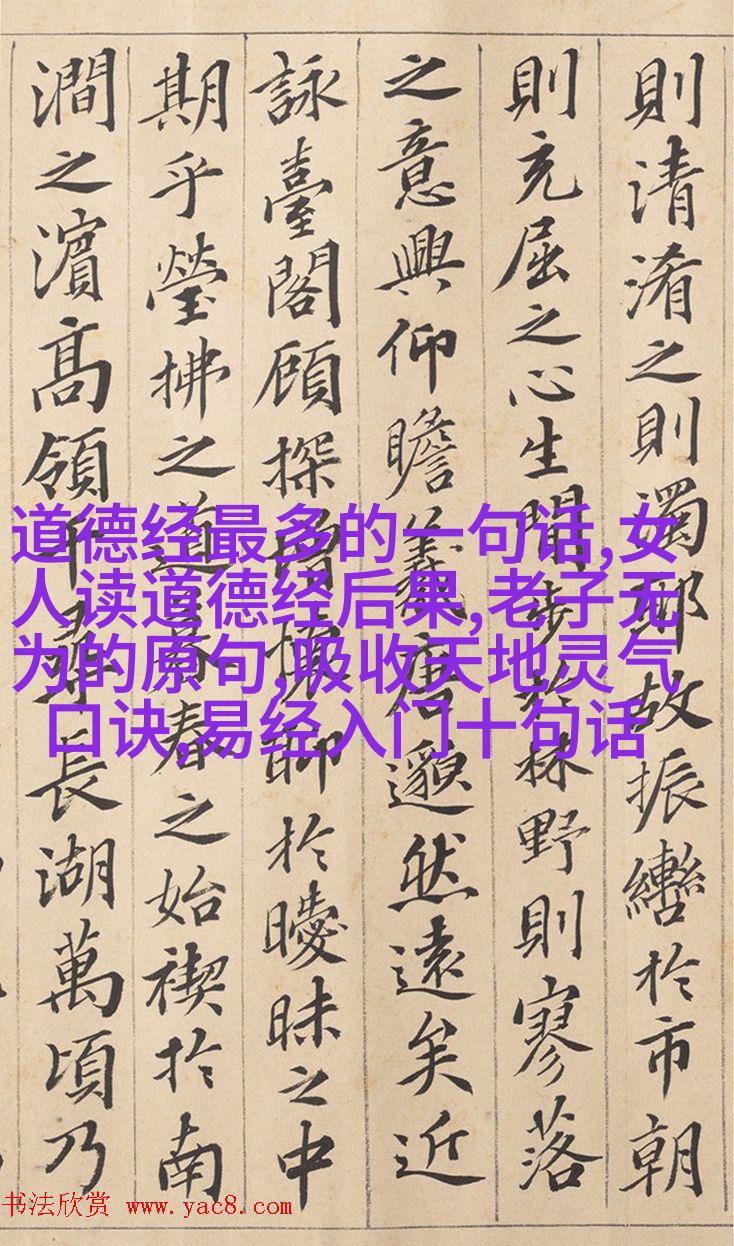 則清淆之則濁邪故振轡於市朝
則充屈之心生閒步於林野則寥落
之意興仰瞻羲唐邈然遠矣近
詠臺閣顧探增懷聊於曖昧之中
期乎瑩拂之道暮春之始禊於南
澗之濱高領千尋長湖萬頃乃
道德经最多的一句话,女
人读道德经后果,老子无
为的原句,吸收天地灵气
口诀,易经入门十句话
书法欣赏 www.yac8.com